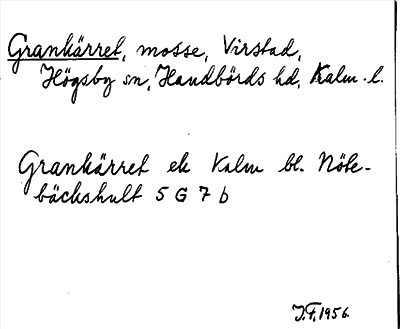 Grankärret, mosse, Virstad,
Högsby sn, Handbörds hd, Kalm. l.
Grankärret ek Kalm bl. Nöte-
bäckshult 5 G 7 b
J.F. 1956.